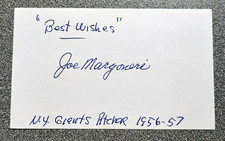 "Best Wishes"
Joe Margoneri
N.Y. Giants Pitcher 1956-57